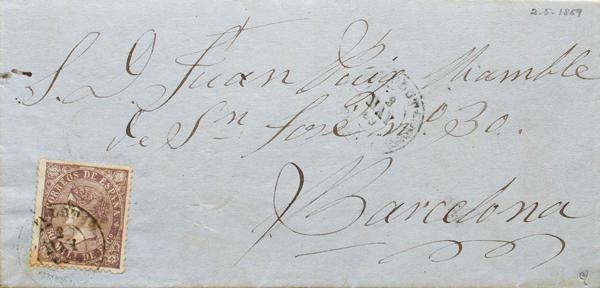 2-5-1869
S. D. Juan Puig Mamble
de Sn José nº 30.
Barcelona
CORREOS DE ESPAÑA